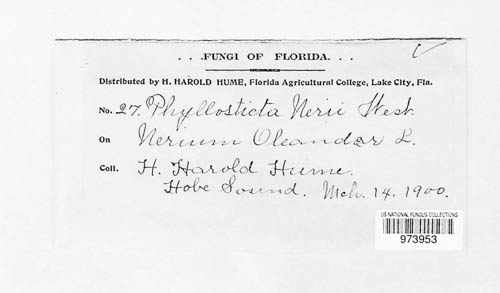 . . .FUNGI OF FLORIDA. . .
Distributed by H. HAROLD HUME, Florida Agricultural College, Lake City, Fla.
No. 27. Phyllosticta Nerii West.
On Nerium Oleander L.
Coll. H. Harold Hume.
Hobe Sound. Mch. 14. 1900.
US NATIONAL FUNGUS COLLECTIONS
973953